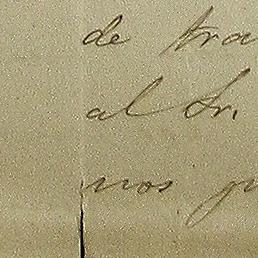 de tra
al Sr.
nos